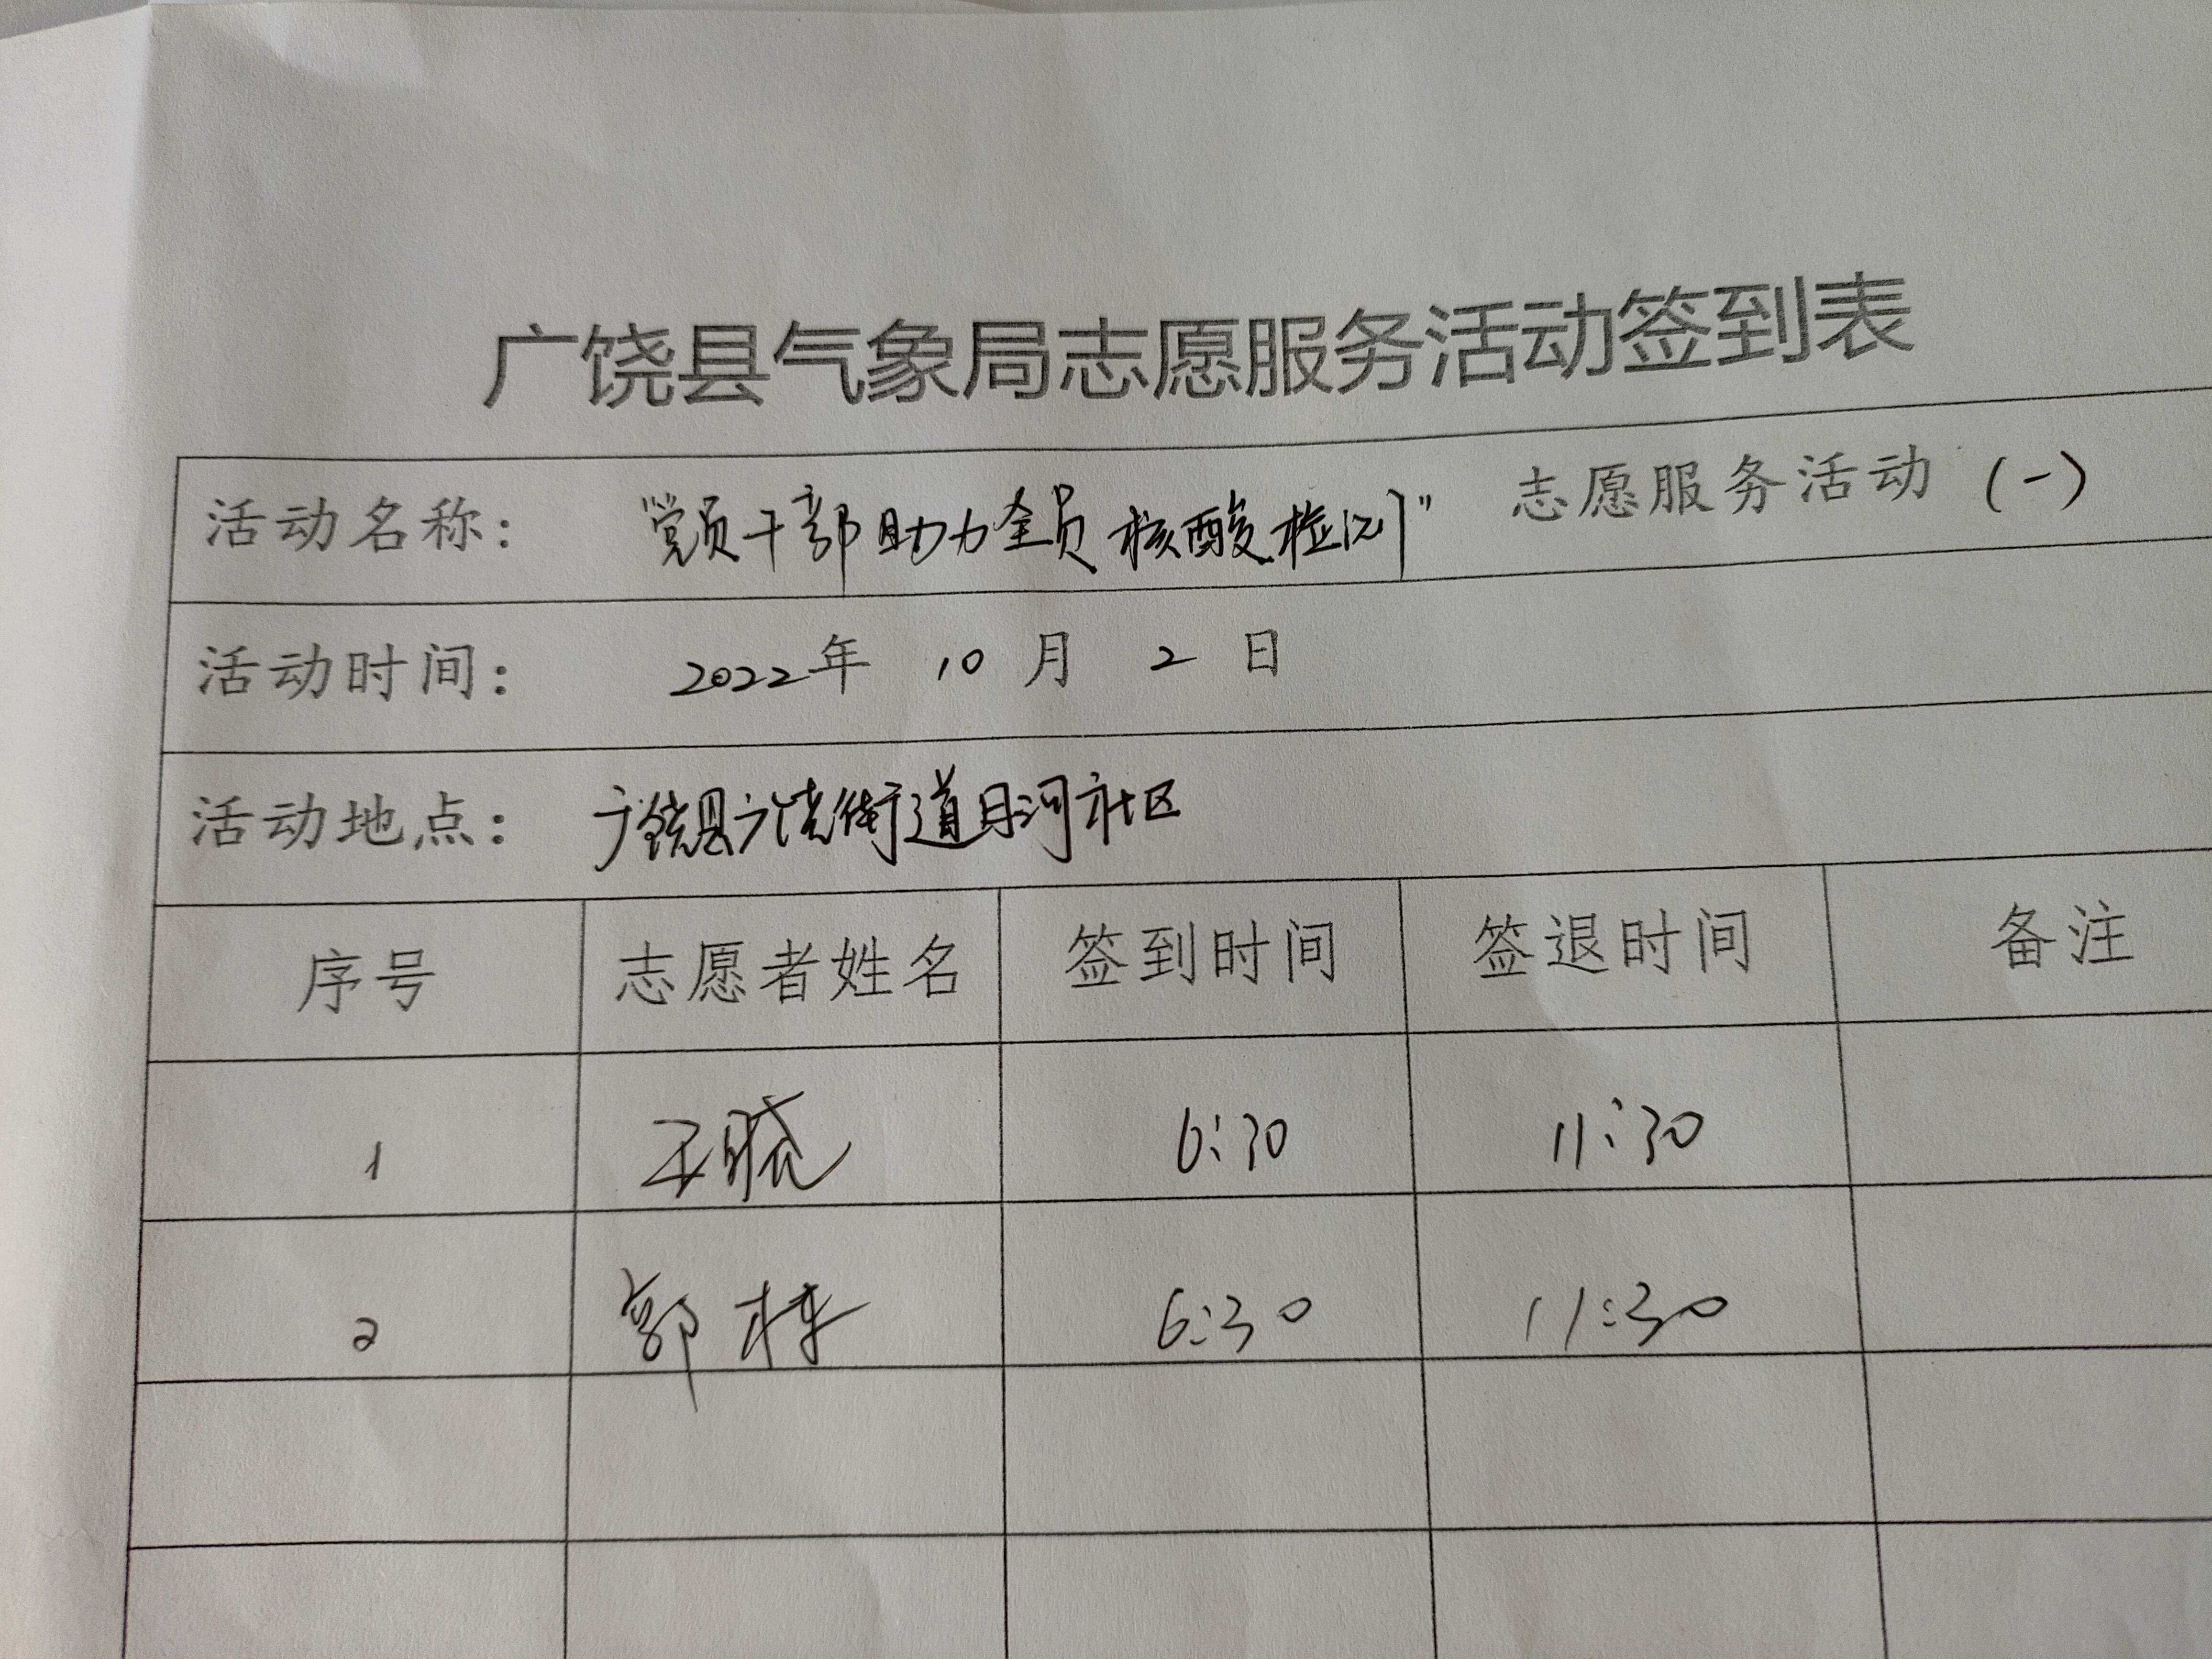 广饶县气象局志愿服务活动签到表
活动名称: "党员干部助力全员核酸检测" 志愿服务活动 (一)
活动时间: 2022年 10 月 2 日
活动地点: 广饶县广饶街道月河社区
序号 志愿者姓名 签到时间 签退时间 备注
1 王晓 6:30 11:30
2 郭 6:30 11:30